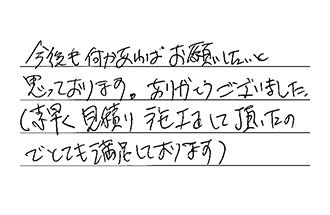 今後も何かあればお願いしたいと
思っております。ありがとうございました。
(素早く見積り 施工して頂いたの
でとても満足しております)